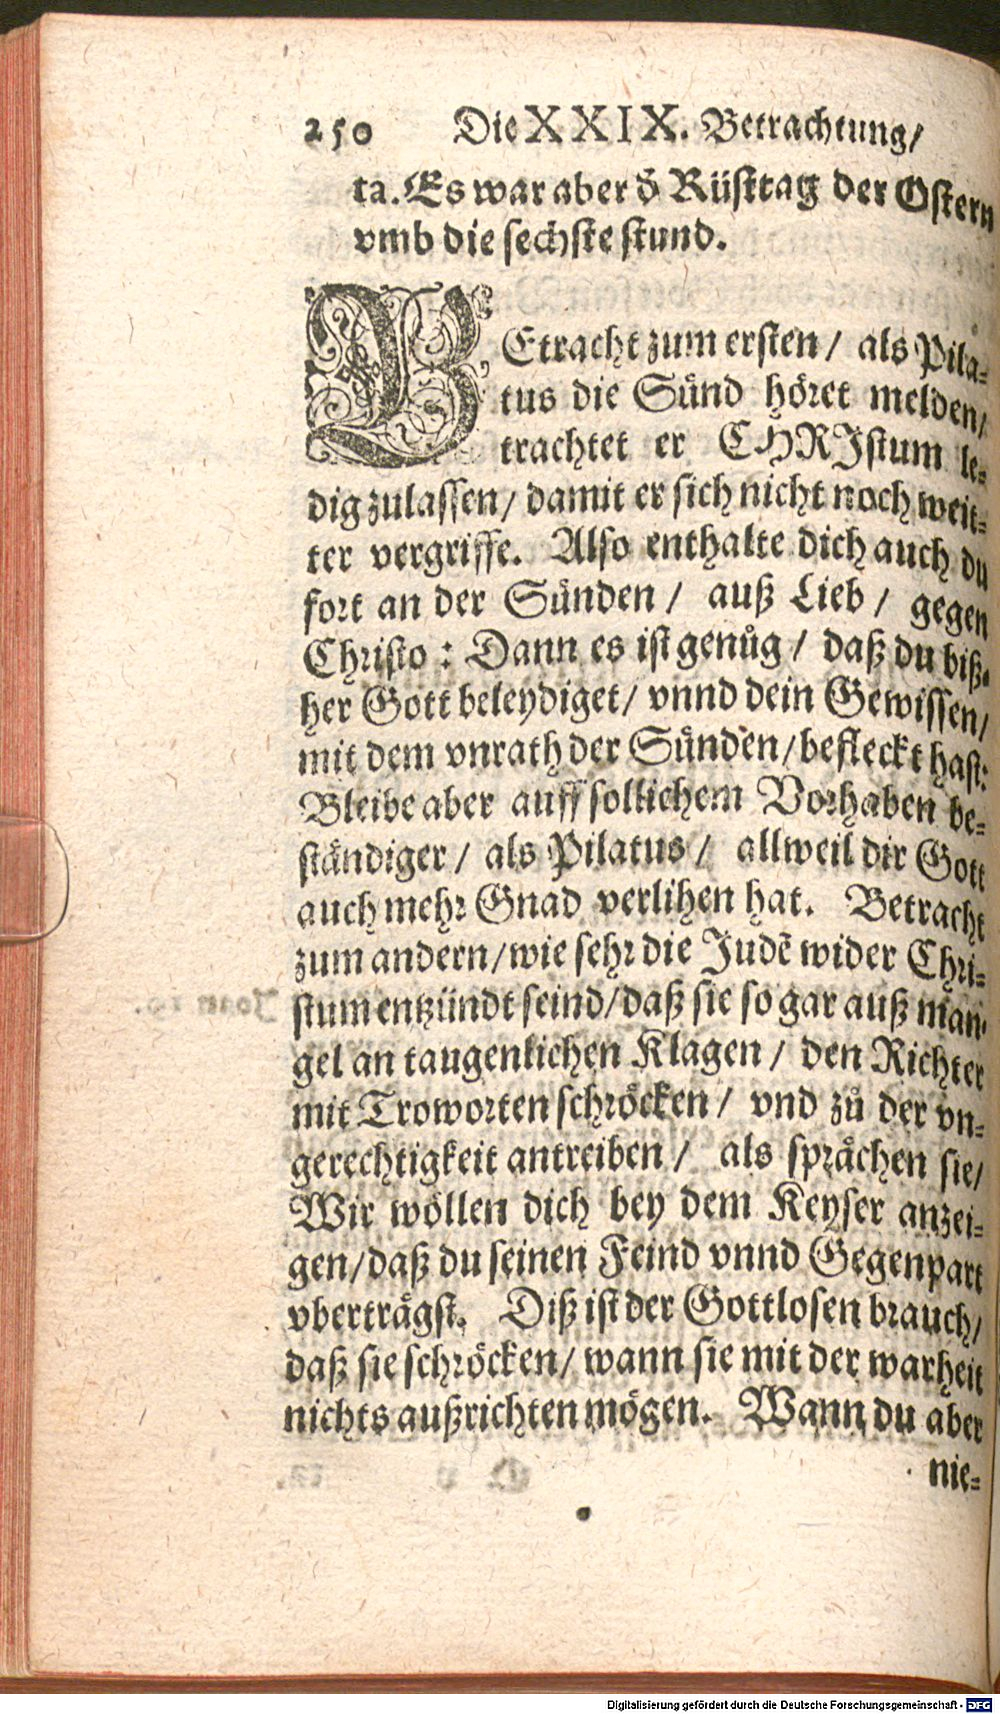 250 Die XXIX. Betrachtung/
ta. Es war aber đ Rüsttag der Ostern
vmb die sechste stund.
BEtracht zum ersten/ als Pila-
tus die Sünd höret melden/
trachtet er CHRIstum le-
dig zulassen/ damit er sich nicht noch weit-
ter vergriffe. Also enthalte dich auch du
fort an der Sünden/ auß Lieb/ gegen
Christo: Dann es ist genůg/ daß du biß-
her Gott beleydiget/ vnnd dein Gewissen/
mit dem vnrath der Sünden/ befleckt hast:
Bleibe aber auff sollichem Vorhaben be-
ständiger/ als Pilatus/ allweil dir Gott
auch mehr Gnad verlihen hat. Betracht
zum andern/ wie sehr die Judẽ wider Chri-
stum entzündt seind/ daß sie so gar auß man-
gel an taugenlichen Klagen/ den Richter
mit Troworten schröcken/ vnd zů der vn-
gerechtigkeit antreiben/ als sprächen sie/
Wir wöllen dich bey dem Keyser anzei-
gen/ daß du seinen Feind vnnd Gegenpart
vberträgst. Diß ist der Gottlosen brauch/
daß sie schröcken/ wann sie mit der warheit
nichts außrichten mögen. Wann du aber
nie-
Digitalisierung gefördert durch die Deutsche Forschungsgemeinschaft - DFG